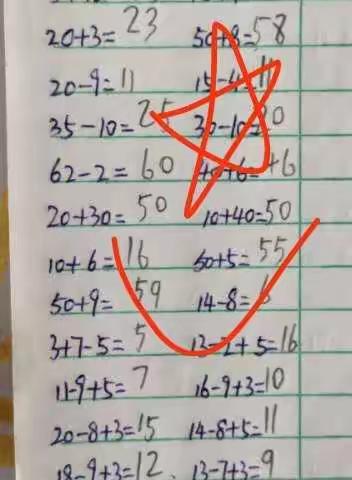 20+3=23 50+8=58
20-9=11 15-4=11
35-10=25 30-10=20
62-2=60 40+6=46
20+30=50 10+40=50
10+6=16 50+5=55
50+9=59 14-8=6
3+7-5=5 13-2+5=16
11-9+5=7 16-9+3=10
20-8+3=15 14-8+5=11
18-9+3=12 13-7+3=9